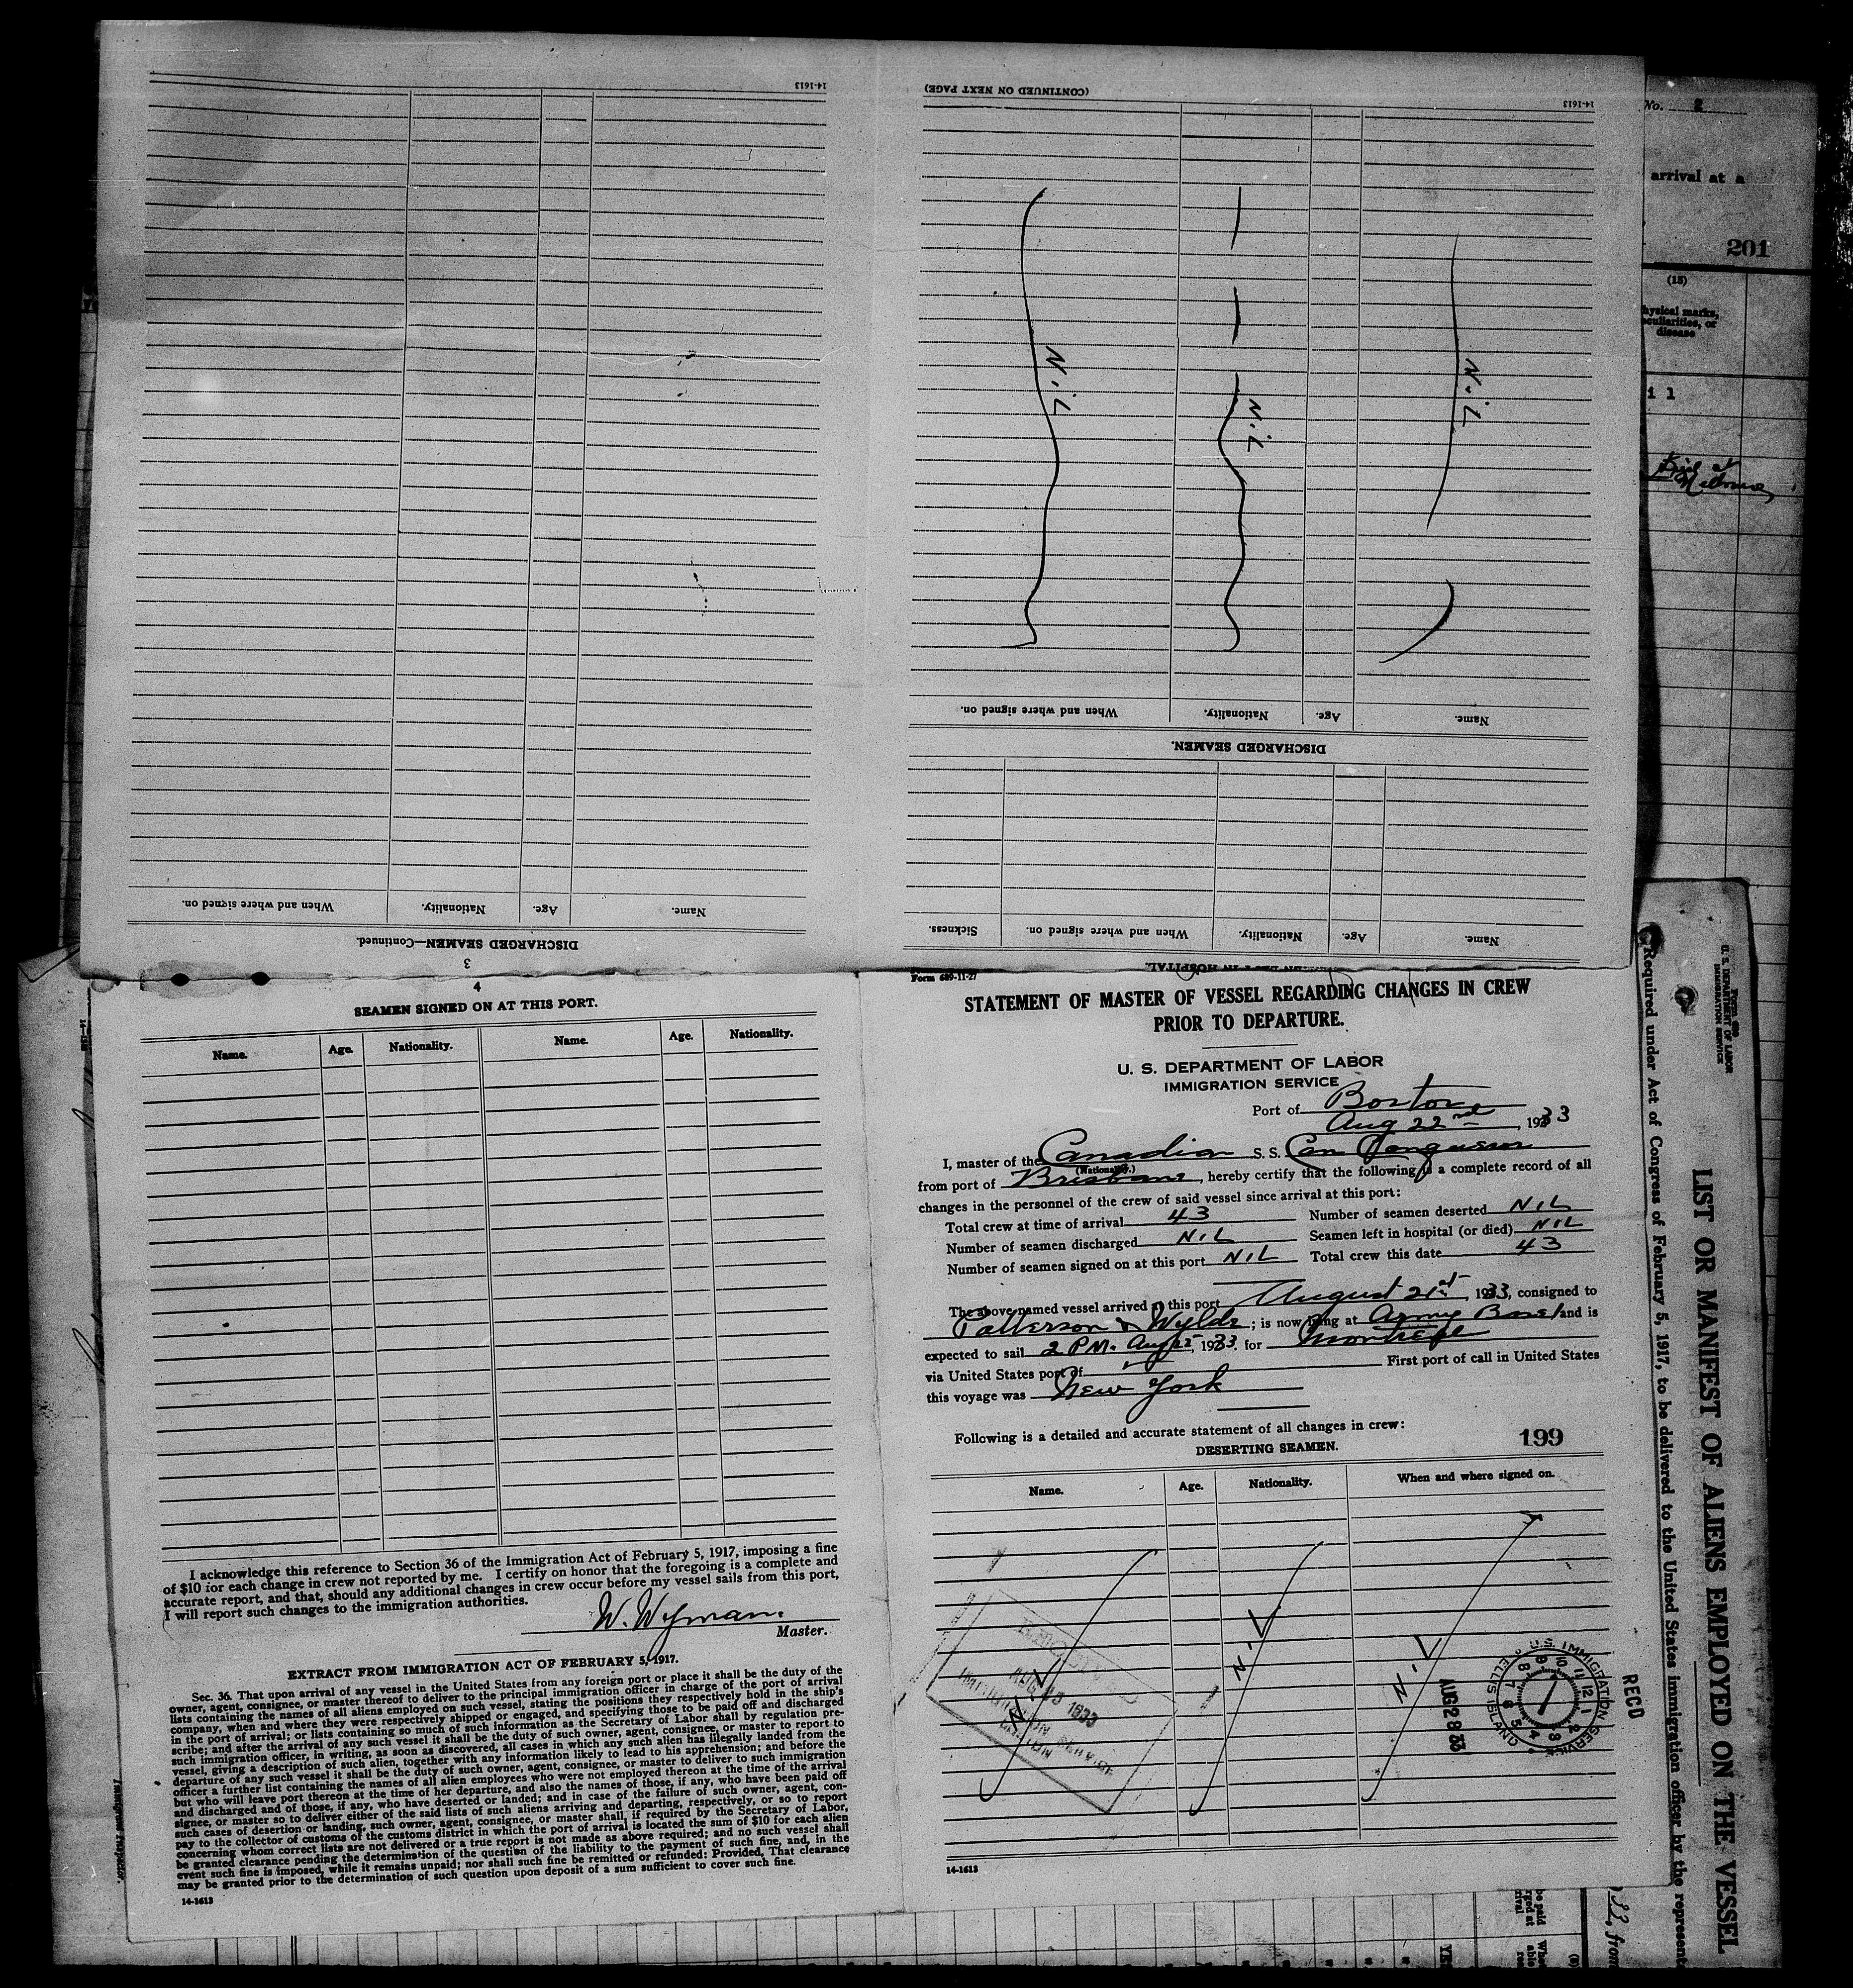 14-1613
(CONTINUED ON NEXT PAGE)
14-1613
Nil
Nil
Nil
When and where signed on.
Nationality.
Age.
Name.
DISCHARGED SEAMEN.
When and where signed on.
Nationality.
Age.
Name.
DISCHARGED SEAMEN—Continued.
3
Sickness.
When and where signed on.
Nationality.
Age.
Name.
No. 2
arrival at a
201
(15)
hysical marks,
eculiarities, or
disease
i l
4
SEAMEN SIGNED ON AT THIS PORT.
Name. Age. Nationality. Name. Age. Nationality.
I acknowledge this reference to Section 36 of the Immigration Act of February 5, 1917, imposing a fine
of $10 for each change in crew not reported by me. I certify on honor that the foregoing is a complete and
accurate report, and that, should any additional changes in crew occur before my vessel sails from this port,
I will report such changes to the immigration authorities.
W. Wyman.
Master.
EXTRACT FROM IMMIGRATION ACT OF FEBRUARY 5, 1917.
Sec. 36. That upon arrival of any vessel in the United States from any foreign port or place it shall be the duty of the
owner, agent, consignee, or master thereof to deliver to the principal immigration officer in charge of the port of arrival
lists containing the names of all aliens employed on such vessel, stating the positions they respectively hold in the ship's
company, when and where they were respectively shipped or engaged, and specifying those to be paid off and discharged
in the port of arrival; or lists containing so much of such information as the Secretary of Labor shall by regulation pre-
scribe; and after the arrival of any such vessel it shall be the duty of such owner, agent, consignee, or master to report to
such immigration officer, in writing, as soon as discovered, all cases in which any such alien has illegally landed from the
vessel, giving a description of such alien, together with any information likely to lead to his apprehension; and before the
departure of any such vessel it shall be the duty of such owner, agent, consignee, or master to deliver to such immigration
officer a further list containing the names of all alien employees who were not employed thereon at the time of the arrival
but who will leave port thereon at the time of her departure, and also the names of those, if any, who have been paid off
and discharged and of those, if any, who have deserted or landed; and in case of the failure of such owner, agent, con-
signee, or master so to deliver either of the said lists of such aliens arriving and departing, respectively, or so to report
such cases of desertion or landing, such owner, agent, consignee, or master shall, if required by the Secretary of Labor,
pay to the collector of customs of the customs district in which the port of arrival is located the sum of $10 for each alien
concerning whom correct lists are not delivered or a true report is not made as above required; and no such vessel shall
be granted clearance pending the determination of the question of the liability to the payment of such fine, and, in the
event such fine is imposed, while it remains unpaid; nor shall such fine be remitted or refunded: Provided, That clearance
may be granted prior to the determination of such question upon deposit of a sum sufficient to cover such fine.
14-1613
Form 689-11-27
STATEMENT OF MASTER OF VESSEL REGARDING CHANGES IN CREW
PRIOR TO DEPARTURE.
U. S. DEPARTMENT OF LABOR
IMMIGRATION SERVICE
Port of Boston
Aug 22nd, 1933
I, master of the Canadian S. S. Can
(Nationality.)
from port of Brisbane, hereby certify that the following is a complete record of all
changes in the personnel of the crew of said vessel since arrival at this port:
Total crew at time of arrival 43 Number of seamen deserted NiL
Number of seamen discharged NiL Seamen left in hospital (or died) NiL
Number of seamen signed on at this port NiL Total crew this date 43
The above-named vessel arrived at this port August 21st, 1933, consigned to
Patterson & Wylde; is now lying at Army Base and is
expected to sail 2 P.M. Aug 22, 1933. for Montreal
via United States port of First port of call in United States
this voyage was New York
Following is a detailed and accurate statement of all changes in crew:
199
DESERTING SEAMEN.
Name. Age. Nationality. When and where signed on.
Nil
Nil
Nil
1933
IMMIGRATION SERVICE
BOSTON
REC'D
U.S. IMMIGRATION SERVICE
ELLIS ISLAND
AUG 28 33
14-1613
Form 689
U. S. DEPARTMENT OF LABOR
IMMIGRATION SERVICE
LIST OR MANIFEST OF ALIENS EMPLOYED ON THE VESSEL
Required under Act of Congress of February 5, 1917, to be delivered to the United States immigration officer by the represent
Immigrant Inspector.
33, from